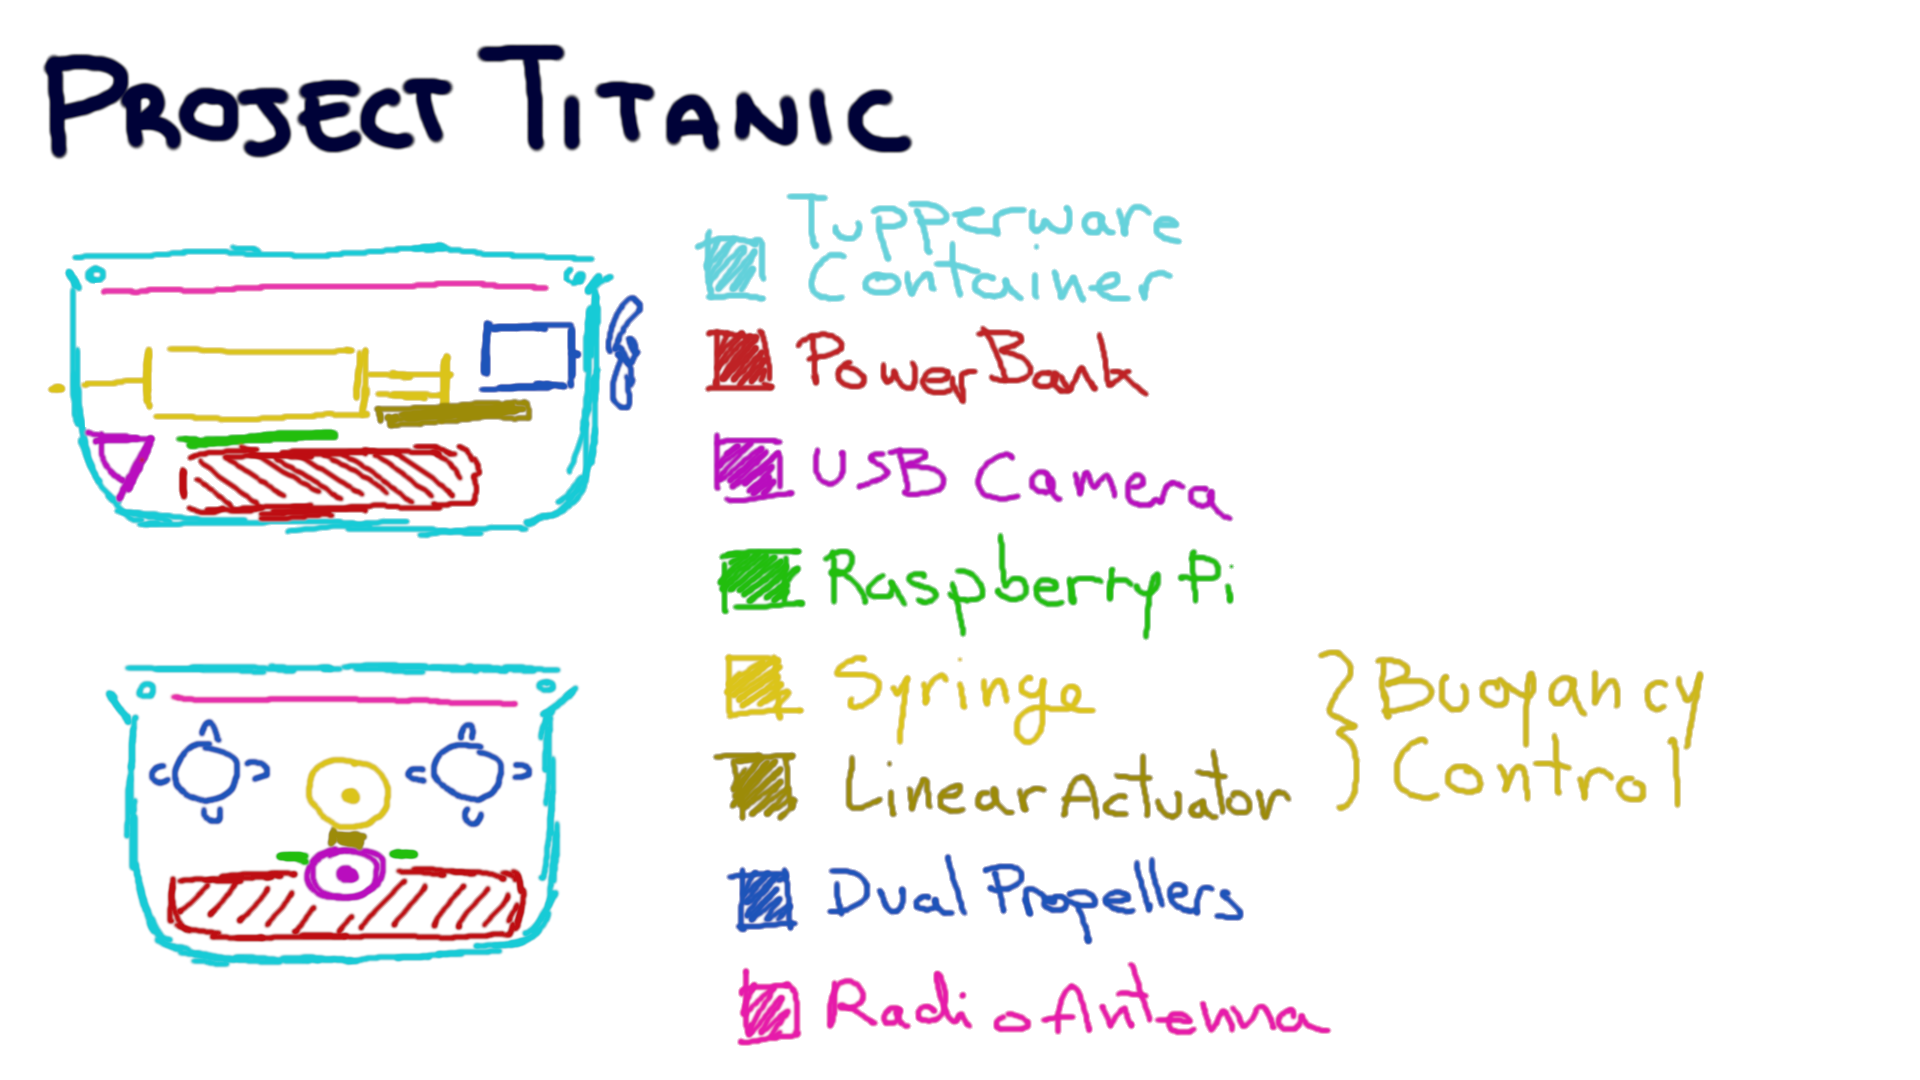 PROJECT TITANIC
Tupperware
Container
Power Bank
USB Camera
Raspberry Pi
Syringe
Linear Actuator
Buoyancy
Control
Dual Propellers
Radio Antenna